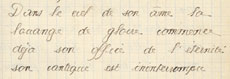 Dans le ciel de son âme la
louange de gloire commence
déjà son office de l'éternité
son cantique est ininterrompu